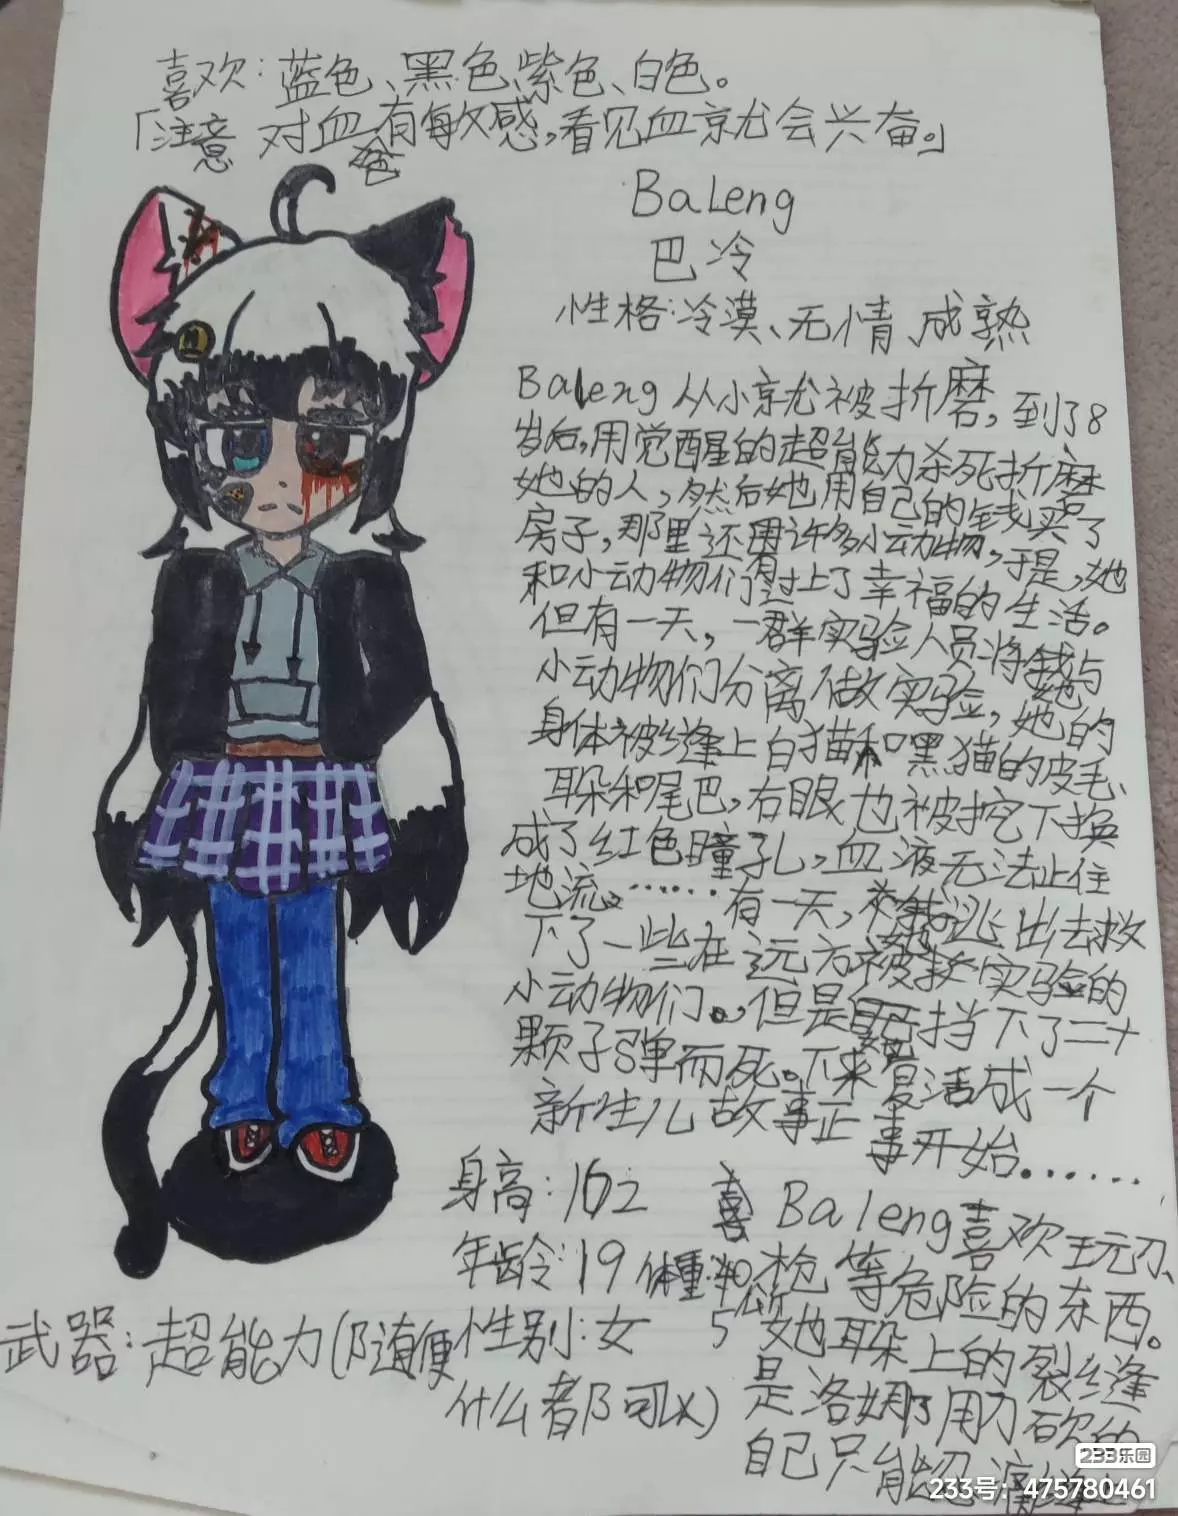 喜欢:蓝色、黑色、紫色、白色。
「注意 对血有敏感,看见血就会兴奋。」
会
BaLeng
巴冷
性格:冷漠、无情、成熟
Baleng从小就被折磨,到了8
岁后,用觉醒的超能力杀死折磨
她的人,然后她用自己的钱买了
房子,那里还有许多小动物,于是,她
和小动物们过上了幸福的生活。
但有一天,一群实验人员将她与
小动物们分离做实验,她的
身体被缝上白猫和黑猫的皮毛、
耳朵和尾巴,右眼也被挖下换
成了红色瞳孔,血液无法止住
地流。……有一天,她逃出去救
下了一些在远方被救实验的
小动物们。,但是自己挡下了二十
颗子弹而死。下来复活成一个
新生儿故事正事开始……
身高:162
年龄:19 体重:40公斤
性别:女 5
武器:超能力(随便
什么都可以)
喜 Baleng喜欢玩刀、
枪等危险的东西。
她耳朵上的裂缝
是洛娜用刀砍的
自己只能忍痛
233乐园
233号:475780461